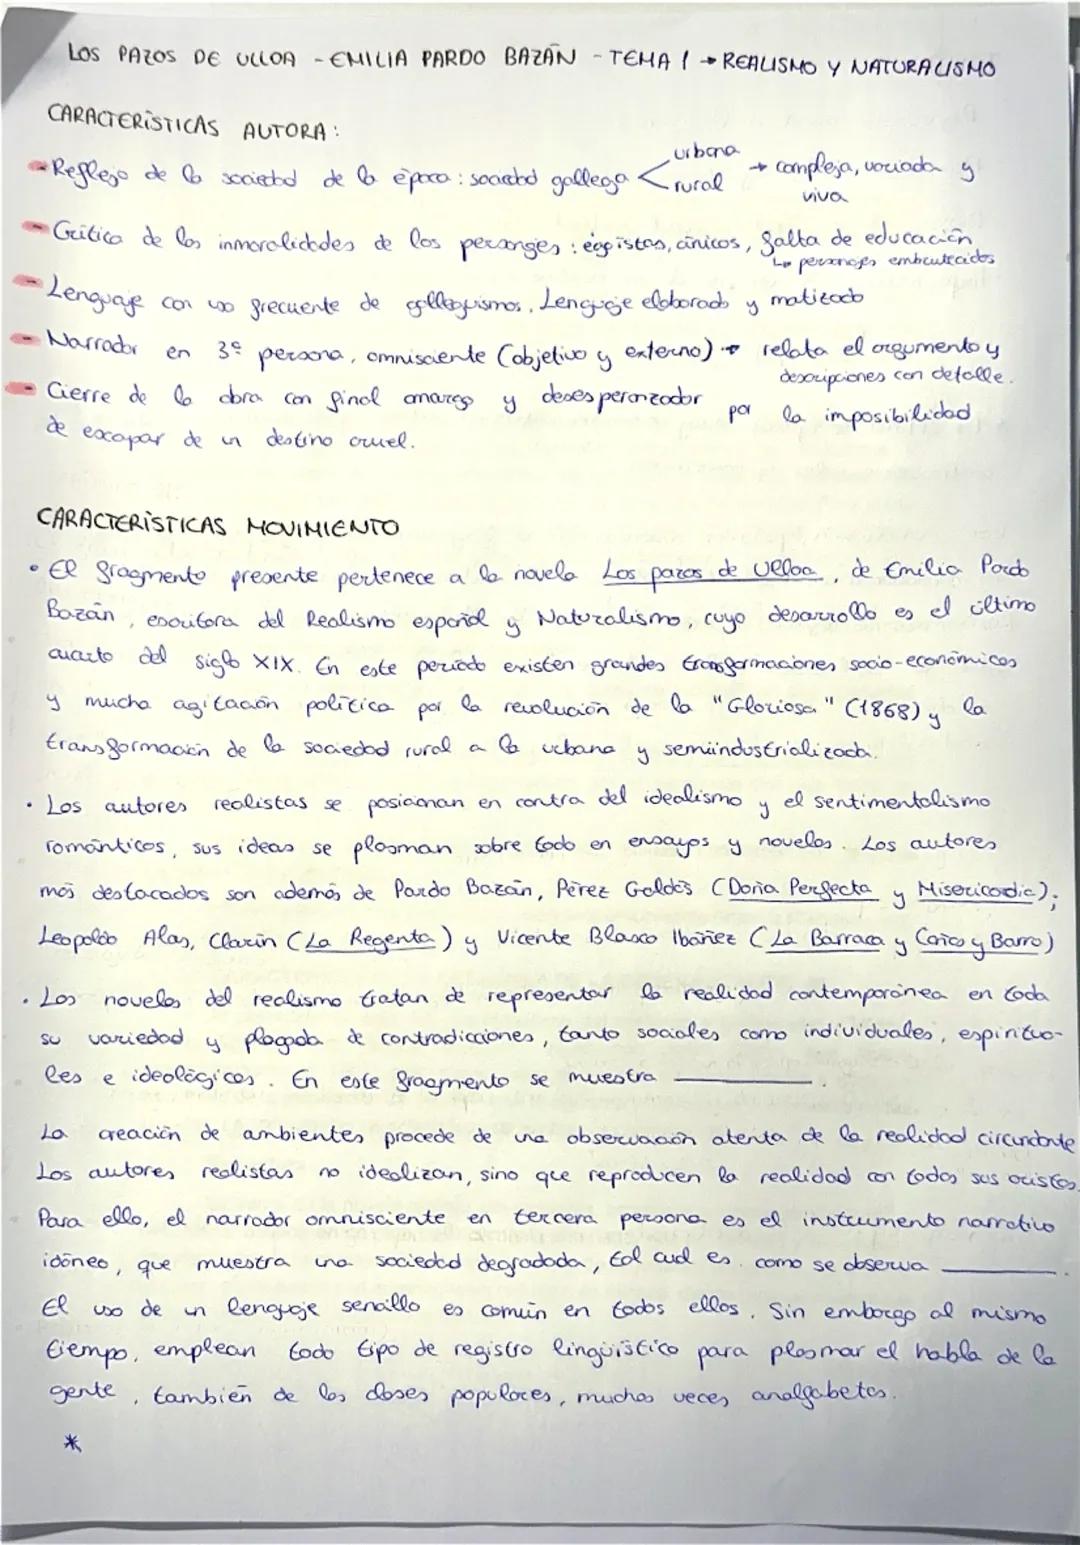 LOS PAZOS DE ULLOA - EMILIA PARDO BAZÁN - TEMA 1 → REALISMO Y NATURALISMO
CARACTERÍSTICAS AUTORA:
- Reflejo de la sociedad de la época: sociedad gallega < urbana rural → compleja, variada y viva
- Crítica de las inmoralidades de los personajes: egoistas, cínicos, falta de educación
↳ personajes embrutecidos
- Lenguaje con uso frecuente de galleguismos. Lenguaje elaborado y matizado
- Narrador en 3ª persona, omnisciente (objetivo y externo) → relata el argumento y
descripciones con detalle.
- Cierre de la obra con final amargo y desesperanzador por la imposibilidad
de escapar de un destino cruel.
CARACTERÍSTICAS MOVIMIENTO
• El fragmento presente pertenece a la novela Los pazos de Ulloa, de Emilia Pardo
Bazán, escritora del Realismo español y Naturalismo, cuyo desarrollo es el último
cuarto del siglo XIX. En este periodo existen grandes transformaciones socio-económicas
y mucha agitación política por la revolución de la "Gloriosa" (1868) y la
transformación de la sociedad rural a la urbana y semiindustrializada.
• Los autores realistas se posicionan en contra del idealismo y el sentimentalismo
románticos, sus ideas se plasman sobre todo en ensayos y novelas. Los autores
más destacados son además de Pardo Bazán, Pérez Galdós (Doña Perfecta y Misericordia);
Leopoldo Alas, Clarín (La Regenta) y Vicente Blasco Ibáñez (La Barraca y Cañas y Barro)
• Las novelas del realismo tratan de representar la realidad contemporánea en toda
su variedad y plagada de contradicciones, tanto sociales como individuales, espiritua-
les e ideológicas. En este fragmento se muestra ______.
La creación de ambientes procede de una observación atenta de la realidad circundante
Los autores realistas no idealizan, sino que reproducen la realidad con todas sus aristas.
Para ello, el narrador omnisciente en tercera persona es el instrumento narrativo
idóneo, que muestra una sociedad degradada, tal cual es. como se observa ______.
El uso de un lenguaje sencillo es común en todos ellos. Sin embargo al mismo
tiempo, emplean todo tipo de registro lingüístico para plasmar el habla de la
gente, también de las clases populares, muchas veces analfabetas.
*